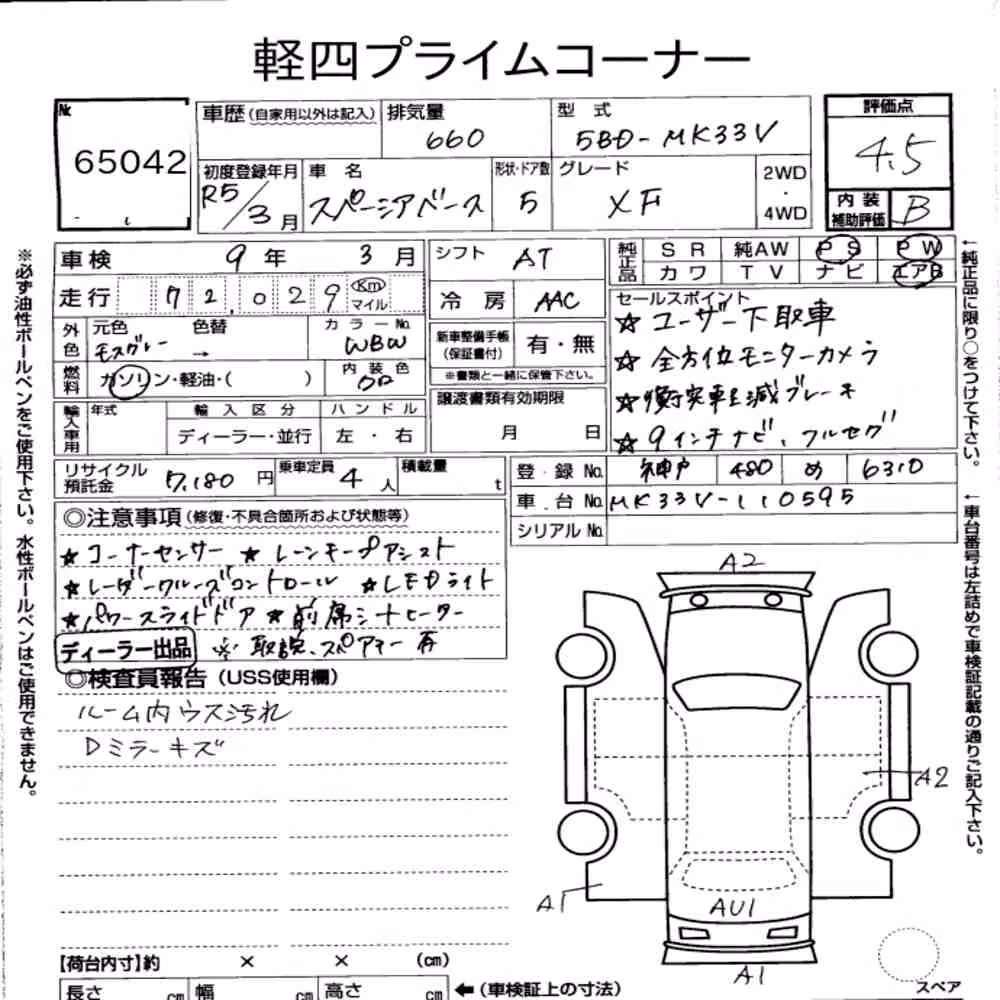 軽四プライムコーナー
№
65042
車歴(自家用以外は記入)
排気量
660
型 式
5BD-MK33V
評価点
4.5
初度登録年月
R5/3月
車 名
スペーシアベース
形状・ドア数
5
グレード
XF
2WD
・
4WD
内 装
補助評価
B
車検 9年 3月
シフト AT
純正品
S R 純AW P S P W
カワ T V ナビ エアB
走行 72,029 Km
マイル
冷 房 AAC
セールスポイント
☆ ユーザー下取車
☆ 全方位モニターカメラ
☆ 衝突軽減ブレーキ
☆ 9インチナビ、フルセグ
外色
元色 色替
モスグレー →
カラーNo.
WBW
新車整備手帳
(保証書付)
有・無
※書類と一緒に保管下さい。
燃料
ガソリン・軽油・( )
内 装 色
輸入車用
年式
輸 入 区 分
ハ ン ド ル
ディーラー・並行
左 ・ 右
譲渡書類有効期限
月 日
リサイクル
預託金
7,180 円
乗車定員
4 人
積載量
t
登 録 No. 神戸 480 め 6310
車 台 No. MK33V-110595
シリアル No.
◎注意事項(修復・不具合箇所および状態等)
☆ コーナーセンサー ☆ レーンキープアシスト
☆ レーダークルーズコントロール ☆ LEDライト
☆ パワースライドドア ☆ 前席シートヒーター
ディーラー出品 ※ 取説、スペアキー 有
◎検査員報告(USS使用欄)
ルーム内ウス汚れ
Dミラーキズ
A2
A2
A1
AU1
A1
スペア
【荷台内寸】約 × × (cm)
長さ cm 幅 cm 高さ cm
←(車検証上の寸法)
※必ず油性ボールペンをご使用下さい。水性ボールペンはご使用できません。
←純正品に限り○をつけて下さい。
←車台番号は左詰めで車検証記載の通りご記入下さい。